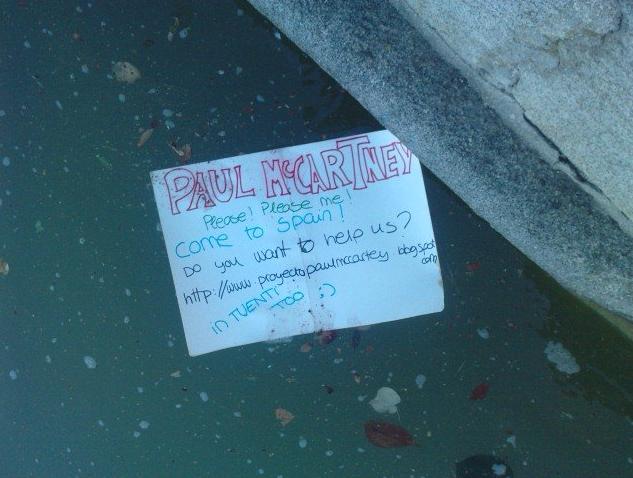 PAUL McCARTNEY
Please! Please me!
come to Spain!
Do you want to help us?
http://www.proyectopaulmccartey.blogspot
com
in TUENTI
TOO ;)